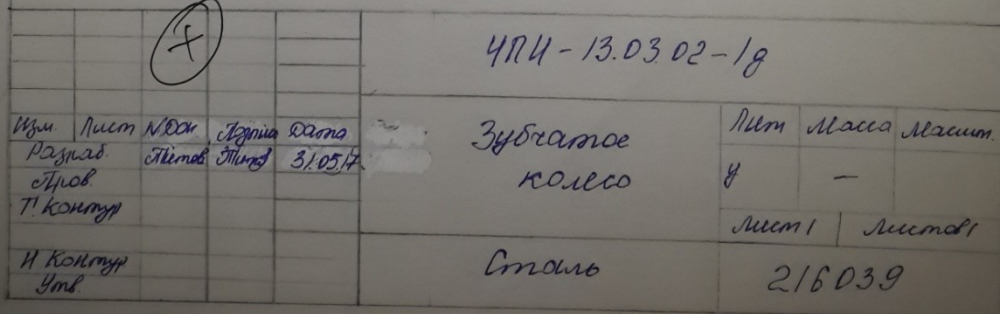 ЧПИ-13.03.02-1д
Изм. Лист №Док Подпись Дата
Разраб. Титов Титов 31.05.17
Пров.
Т. Контур
Н Контур
Утв.
Зубчатое
колесо
Сталь
Лит Масса Масшт.
у —
Лист 1 Листов 1
216039